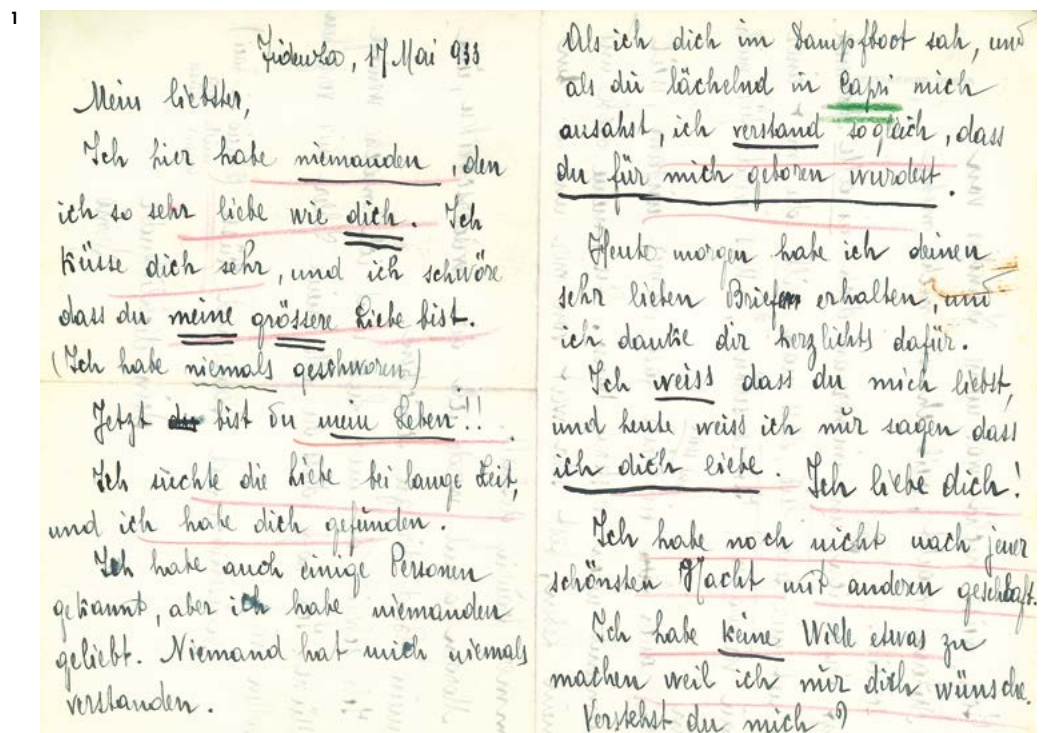 1
Fidenza, 17 Mai 933
Mein liebster,
Ich hier habe niemanden, den
ich so sehr liebe wie dich. Ich
küsse dich sehr, und ich schwöre
dass du meine grössere Liebe bist.
(Ich habe niemals geschworen)
Jetzt bist du mein Leben!!
Ich suchte die Liebe bei lange Zeit,
und ich habe dich gefunden.
Ich habe auch einige Personen
gekannt, aber ich habe niemanden
geliebt. Niemand hat mich niemals
verstanden.
Als ich dich im Dampfboot sah, und
als du lächelnd in Capri mich
ansahst, ich verstand sogleich, dass
du für mich geboren wurdest.
Heute morgen habe ich deinen
sehr lieben Brief erhalten, und
ich danke dir herzlichts dafür.
Ich weiss dass du mich liebst,
und heute weiss ich nur sagen dass
ich dich liebe. Ich liebe dich!
Ich habe noch nicht nach jener
schönsten Nacht mit anderen geschlaft.
Ich habe keine Wille etwas zu
machen weil ich nur dich wünsche.
Verstehst du mich?